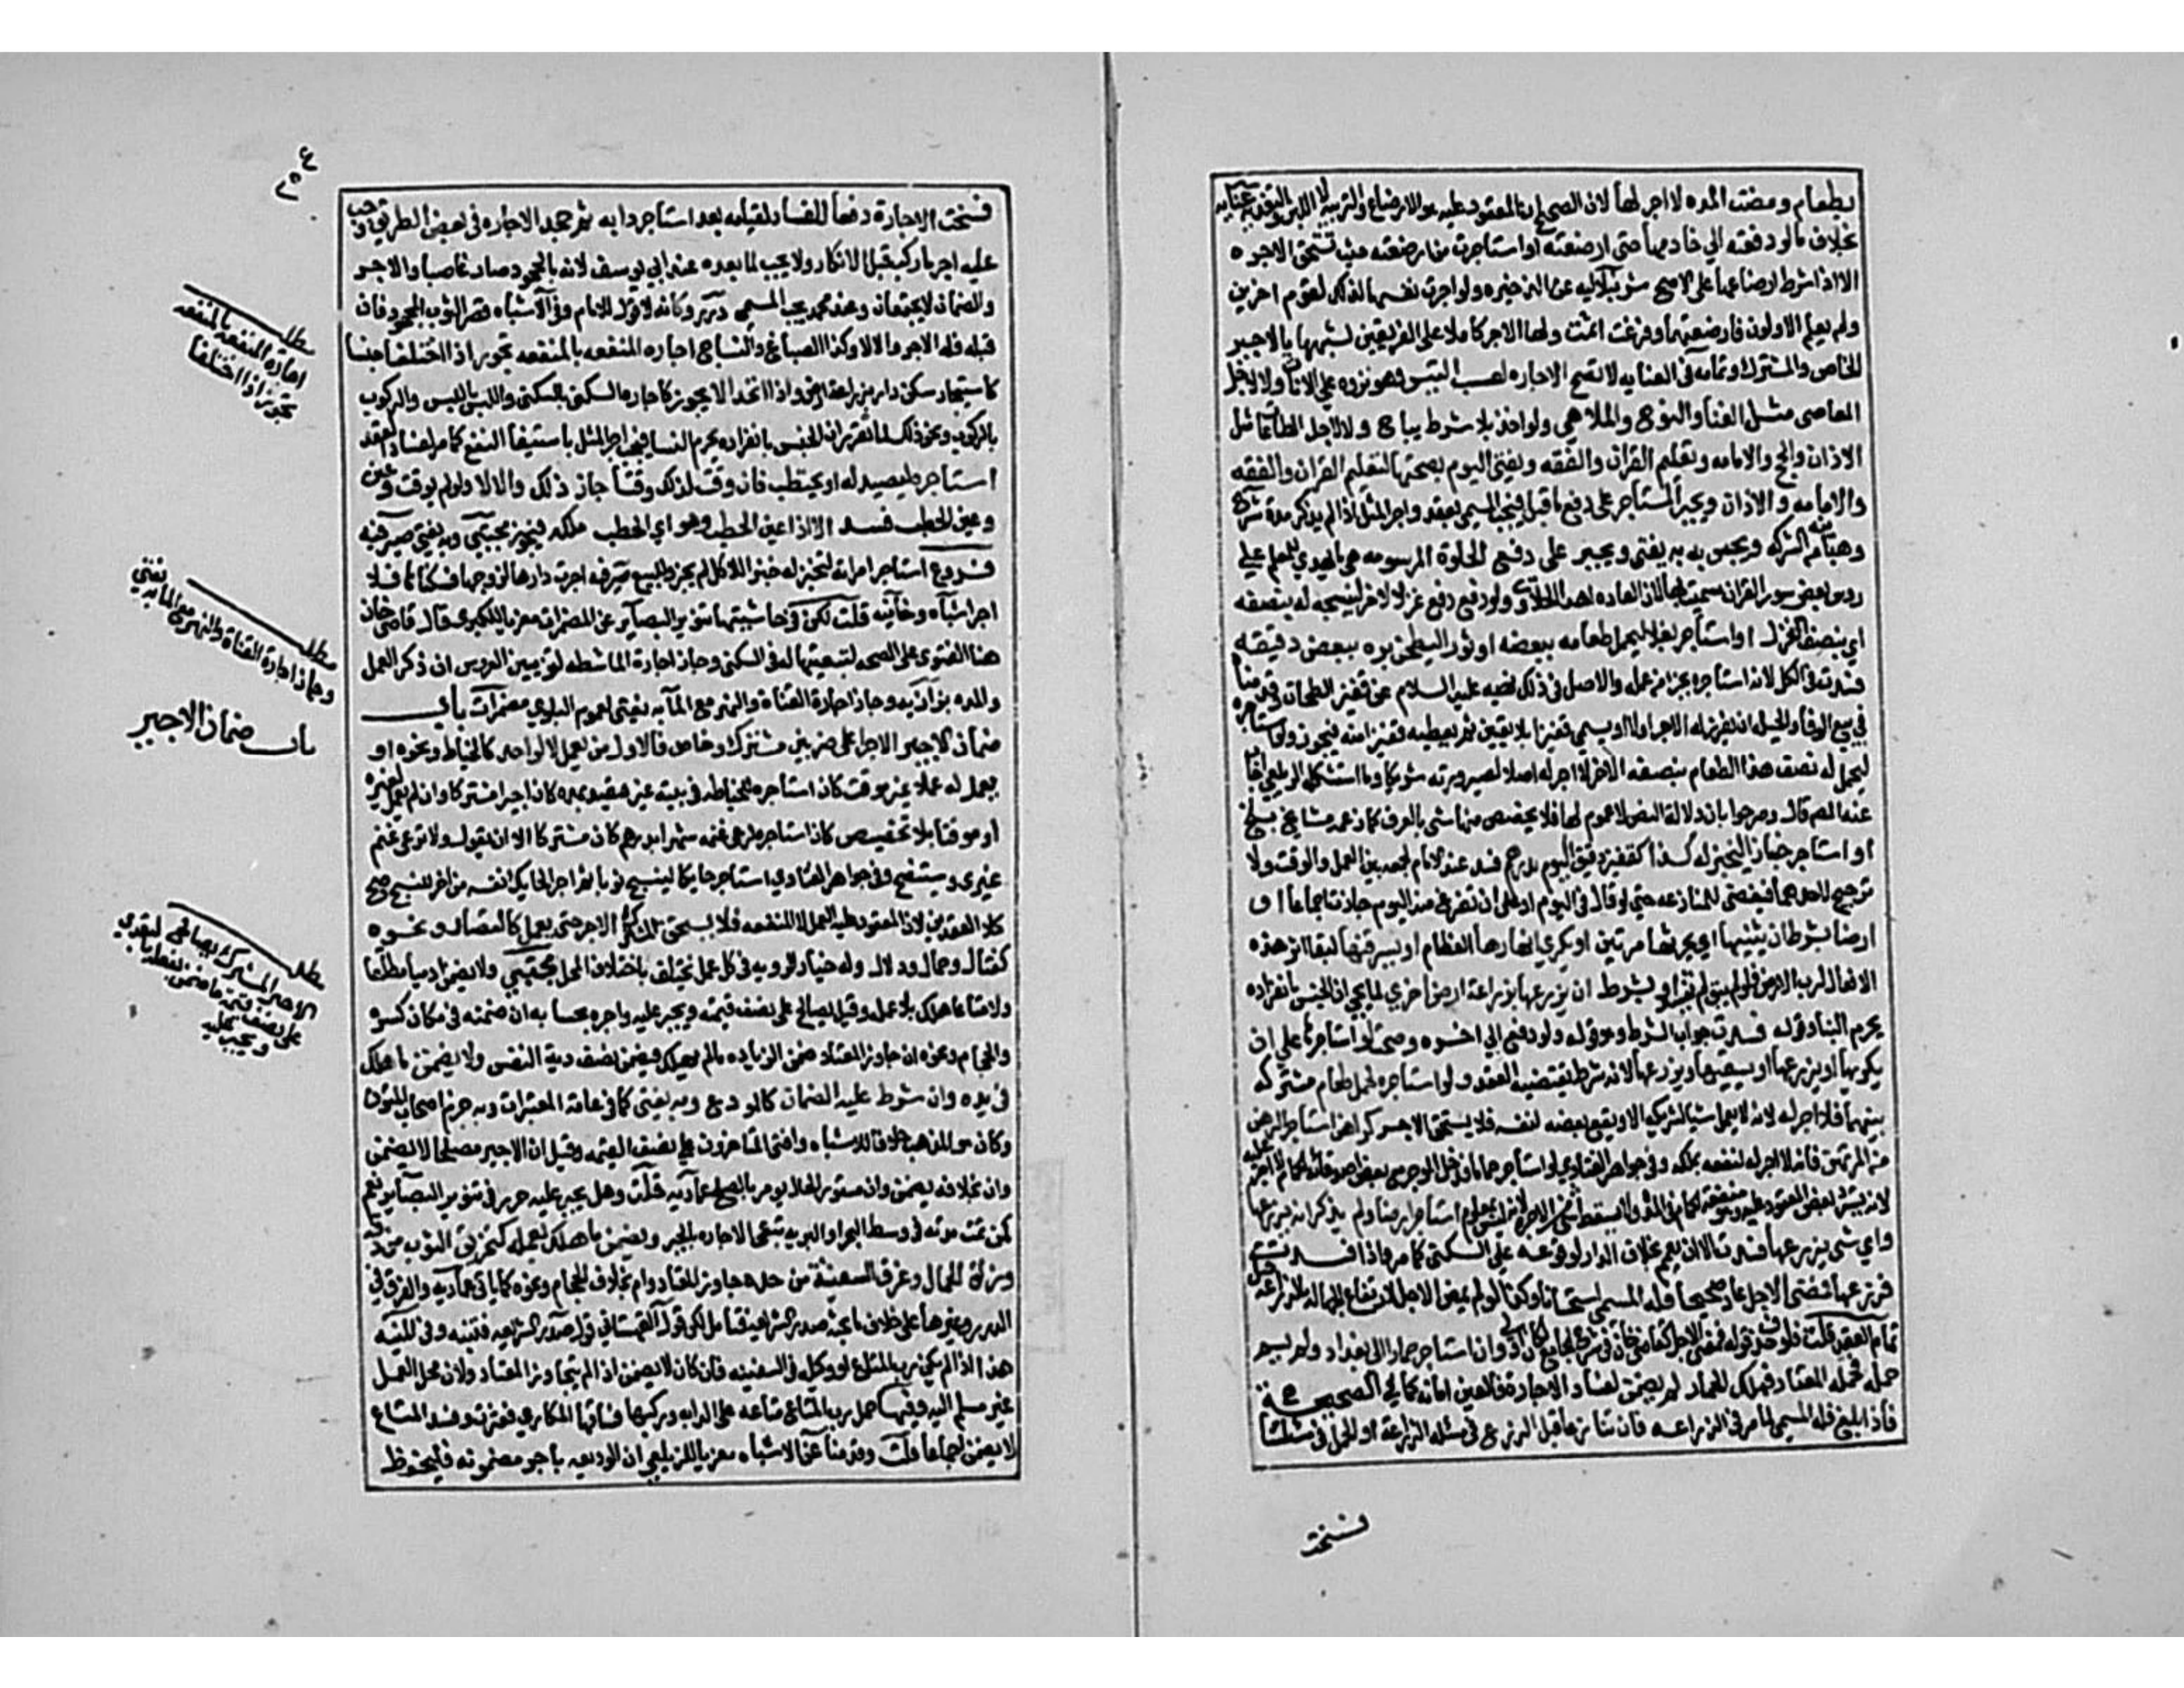 بطعام ومضت المده لا اجر لها لان الصحيح ان المعقود عليه هو الارضاع والتربيه لا اللبن والتغذيه عنايه
بخلاف ما لو دفعته الي خادمها حتي ارضعته او استاجرت من ارضعته حيث تستحق الاجره
الا اذا شرط ارضاعها على الاصح شرنبلاليه عن الذخيره ولو اجرت نفسها لذلك لقوم اخرين
ولم يعلم الاولون فارضعتهما وفرغت اثمت ولها الاجر كاملا على الفريقين لشبهها بالاجير
الخاص والمشترك وتمامه في العنايه لا تصح الاجاره لعسب التيس وهو نزوه علي الاناث ولا لاجل
المعاصي مثل الغنا والنوح والملاهي ولو اخذ بلا شرط يباح ولا لاجل الطاعات مثل
الاذان والحج والامامه وتعليم القران والفقه ويفتى اليوم بصحتها لتعليم القران والفقه
والامامه والاذان ويجبر المستاجر على دفع ما قبل فيجب المسمى بعقد واجر المثل اذا لم يذكر مدة شرح
وهبانيه من الشركه ويحبس به به يفتى ويجبر على دفع الحلوة المرسومه هي ما يهدي للمعلم علي
روس بعض سور القران سميت بها لان العاده اهدا الحلاوي ولو دفع غزلا لاخر لينسجه له بنصفه
اي بنصف الغزل او استاجر بغلا ليحمل طعامه ببعضه او ثورا ليطحن بره ببعض دقيقه
فسدت في الكل لانه استاجره بجزء من عمله والاصل في ذلك نهيه عليه السلام عن قفيز الطحان وقدمناه
في بيع الوفا والحيله ان يفرز له الاجر اولا او يسمي قفيزا بلا تعيين ثم يعطيه قفيزا منه فيجوز ولو استاجره
ليحمل له نصف هذا الطعام بنصفه الاخر لا اجر له اصلا لصيرورته شريكا وما استشكله الزيلعي اجاب
عنه المص قال وصرحوا بان دلالة النص لا عموم لها فلا يخصص منها شي بالعرف كما زعمه مشايخ بلخ
او استاجر خبازا ليخبز له كذا كقفيز دقيق اليوم بدرهم فسد عند الامام لجمعه بين العمل والوقت ولا
ترجيح لاحدهما فيفضي للمنازعه حتي لو قال في اليوم او على ان تفرغ منه اليوم جازت اجماعا او
ارضا بشرط ان يثنيها اي يحرثها مرتين او يكري انهارها العظام او يسرقنها لبقا اثر هذه
الافعال لرب الارض فلو لم يبق لم تفسد او بشرط ان يزرعها بزراعة ارض اخري لما يجي ان الجنس بانفراده
يحرم النسا وقوله فسدت جواب الشرط وهو قوله ولو دفع الي اخره وصحت لو استاجرها علي ان
يكربها او يزرعها او يسقيها ويزرعها لانه شرط يقتضيه العقد ولو استاجره لحمل طعام مشترك
بينهما فلا اجر له لانه لا يعمل شيا لشريكه الا ويقع بعضه لنفسه فلا يستحق الاجر كراهن استاجر الرهن
من المرتهن فانه لا اجر له لنفعه بملكه
واي شي يزرعها فسدت الا ان يعمم بخلاف الدار لوقوعه علي السكنى كما مر واذا فسدت
فزرعها فمضى الاجل عاد صحيحا فله المسمى استحسانا وكذا لو لم يمض الاجل لارتفاع الجهاله بالزراعه قبل
تمام العقد قلت فلو حذف قوله فمضى الاجل كقاضي خان في شرح الجامع لكان اولى وان استاجر حمارا الى بغداد ولم يسم
حمله فحمله المعتاد فهلك الحمار لم يضمن لفساد الاجارة فالعين امانه كما في الصحيحة
فاذا بلغ فله المسمي لما مر في الزراعه فان تنازعا قبل الزرع في مسئله الزراعة او الحمل في مسئلتنا
فسخت
٢٥٤
فسخت الاجارة دفعا للفساد لقيامه بعد استاجر دابه ثم جحد الاجاره في بعض الطريق وجب
عليه اجر ما ركب قبل الانكار ولا يجب لما بعده عند ابي يوسف لانه بالجحود صار غاصبا والاجر
والضمان لا يجتمعان وعند محمد يجب المسمى درر وكانه لا قول للامام وفي الاشباه قصر الثوب المجحود فان
قبله فله الاجر والا لا وكذا الصباغ والنساج اجاره المنفعه بالمنفعه تجوز اذا اختلفا جنسا
كاستيجار سكنى دار بزراعة ارض واذا اتحدا لا يجوز كاجاره السكنى بالسكنى واللبس باللبس والركوب
بالركوب ونحو ذلك لما تقرر ان الجنس بانفراده يحرم النسا فيجب اجر المثل باستيفا النفع كما مر لفساد العقد
استاجره ليصيد له او يحتطب فان وقت لذلك وقتا جاز ذلك والا لا ولو لم يوقت وعين
وعين الحطب فسد الا اذا عين الحطب وهو اي الحطب ملكه فيجوز مجتبى وبه يفتى صيرفيه
فروع استاجر امراته لتخبز له خبزا للاكل لم يجز وللبيع صيرفيه اجرت دارها لزوجها فسكناها فلا
اجر اشباه وخانيه قلت لكن في حاشيتها تنوير البصاير عن المضمرات معزيا للكبرى قال قاضي خان
هنا الفتوى على الصحه لتبعيتها له في السكنى وجاز اجارة الماشطه لتزيين العروس ان ذكر العمل
والمده بزازيه وجاز اجارة القناة والنهر مع الما به يفتى لعموم البلوي مضمرات باب
ضمان الاجير الاجرا على ضربين مشترك وخاص فالاول من يعمل لا لواحد كالخياط ونحوه او
يعمل له عملا غير موقت كان استاجره للخياطه في بيته غير مقيد بمده كان اجيرا مشتركا وان لم يعمل لغيره
او موقتا بلا تخصيص كان استاجره ليرعى غنمه شهرا بدرهم كان مشتركا الا ان يقول ولا ترعى غنم
غيري وسيتضح وفي جواهر الفتاوي استاجر حايكا لينسج ثوبا ثم اجر الحايك نفسه من اخر للنسج صح
كلا العقدين لان المعقود عليه العمل لا المنفعه فلا يستحق المشترك الاجر حتى يعمل كالقصار ونحوه
كفتال وحمال ودلال وله خيار الرويه في كل عمل يختلف باختلاف المحل مجتبى ولا يضمن
وقيل يصالح على نصف قيمته ويجبر عليه
والحجام ونحوه ان جاوز المعتاد ضمن الزياده ما لم يهلك فيضمن نصف دية النفس ولا يضمن ما هلك
في يده وان شرط عليه الضمان كالوديع وبه يفتى كما في عامة المعتبرات وبه جزم اصحاب المتون
وكان هو المذهب خلافا للاشباه وافتى المتاخرون علي نصف القيمه وقيل ان الاجير مصلحا لا يضمن
وان بخلافه يضمن وان مستور الحال يومر بالصلح عماديه قلت وهل يجبر عليه حرر في تنوير البصاير نعم
كمن تمت مدته في وسط البحر او البريه تبقى الاجاره بالجبر ويضمن ما هلك بعمله كتخريق الثوب من دقه
وزلق الحمال وغرق السفينة من مده جاوز المعتاد ام لا بخلاف الحجام ونحوه كما ياتي عماديه والفرق في
الدرر وغيرها على خلاف ما بحثه صدر الشريعه فتامل لكن قول القهستاني قول صدر الشريعه فتنبه وفي المنيه
هذا اذا لم يكن رب المتاع او وكيله في السفينه فان كان لا يضمن اذا لم يتجاوز المعتاد ولان محل العمل
غير مسلم اليه وفيها حمل رب المتاع متاعه على الدابه وركبها فساقها المكاري فعثرت وفسد المتاع
لا يضمن اجماعا قلت وقدمنا عن الاشباه معزيا للزيلعي ان الوديعه باجر مضمونه فليحفظ
مطلب
اجارة المنفعه بالمنفعه
تجوز اذا اختلفا
مطلب
وجاز اجارة القناة والنهر مع الما به يفتى
باب ضمان الاجير
مطلب
الاجير المشترك يصالح
على نصف قيمة
ويجبر عليه